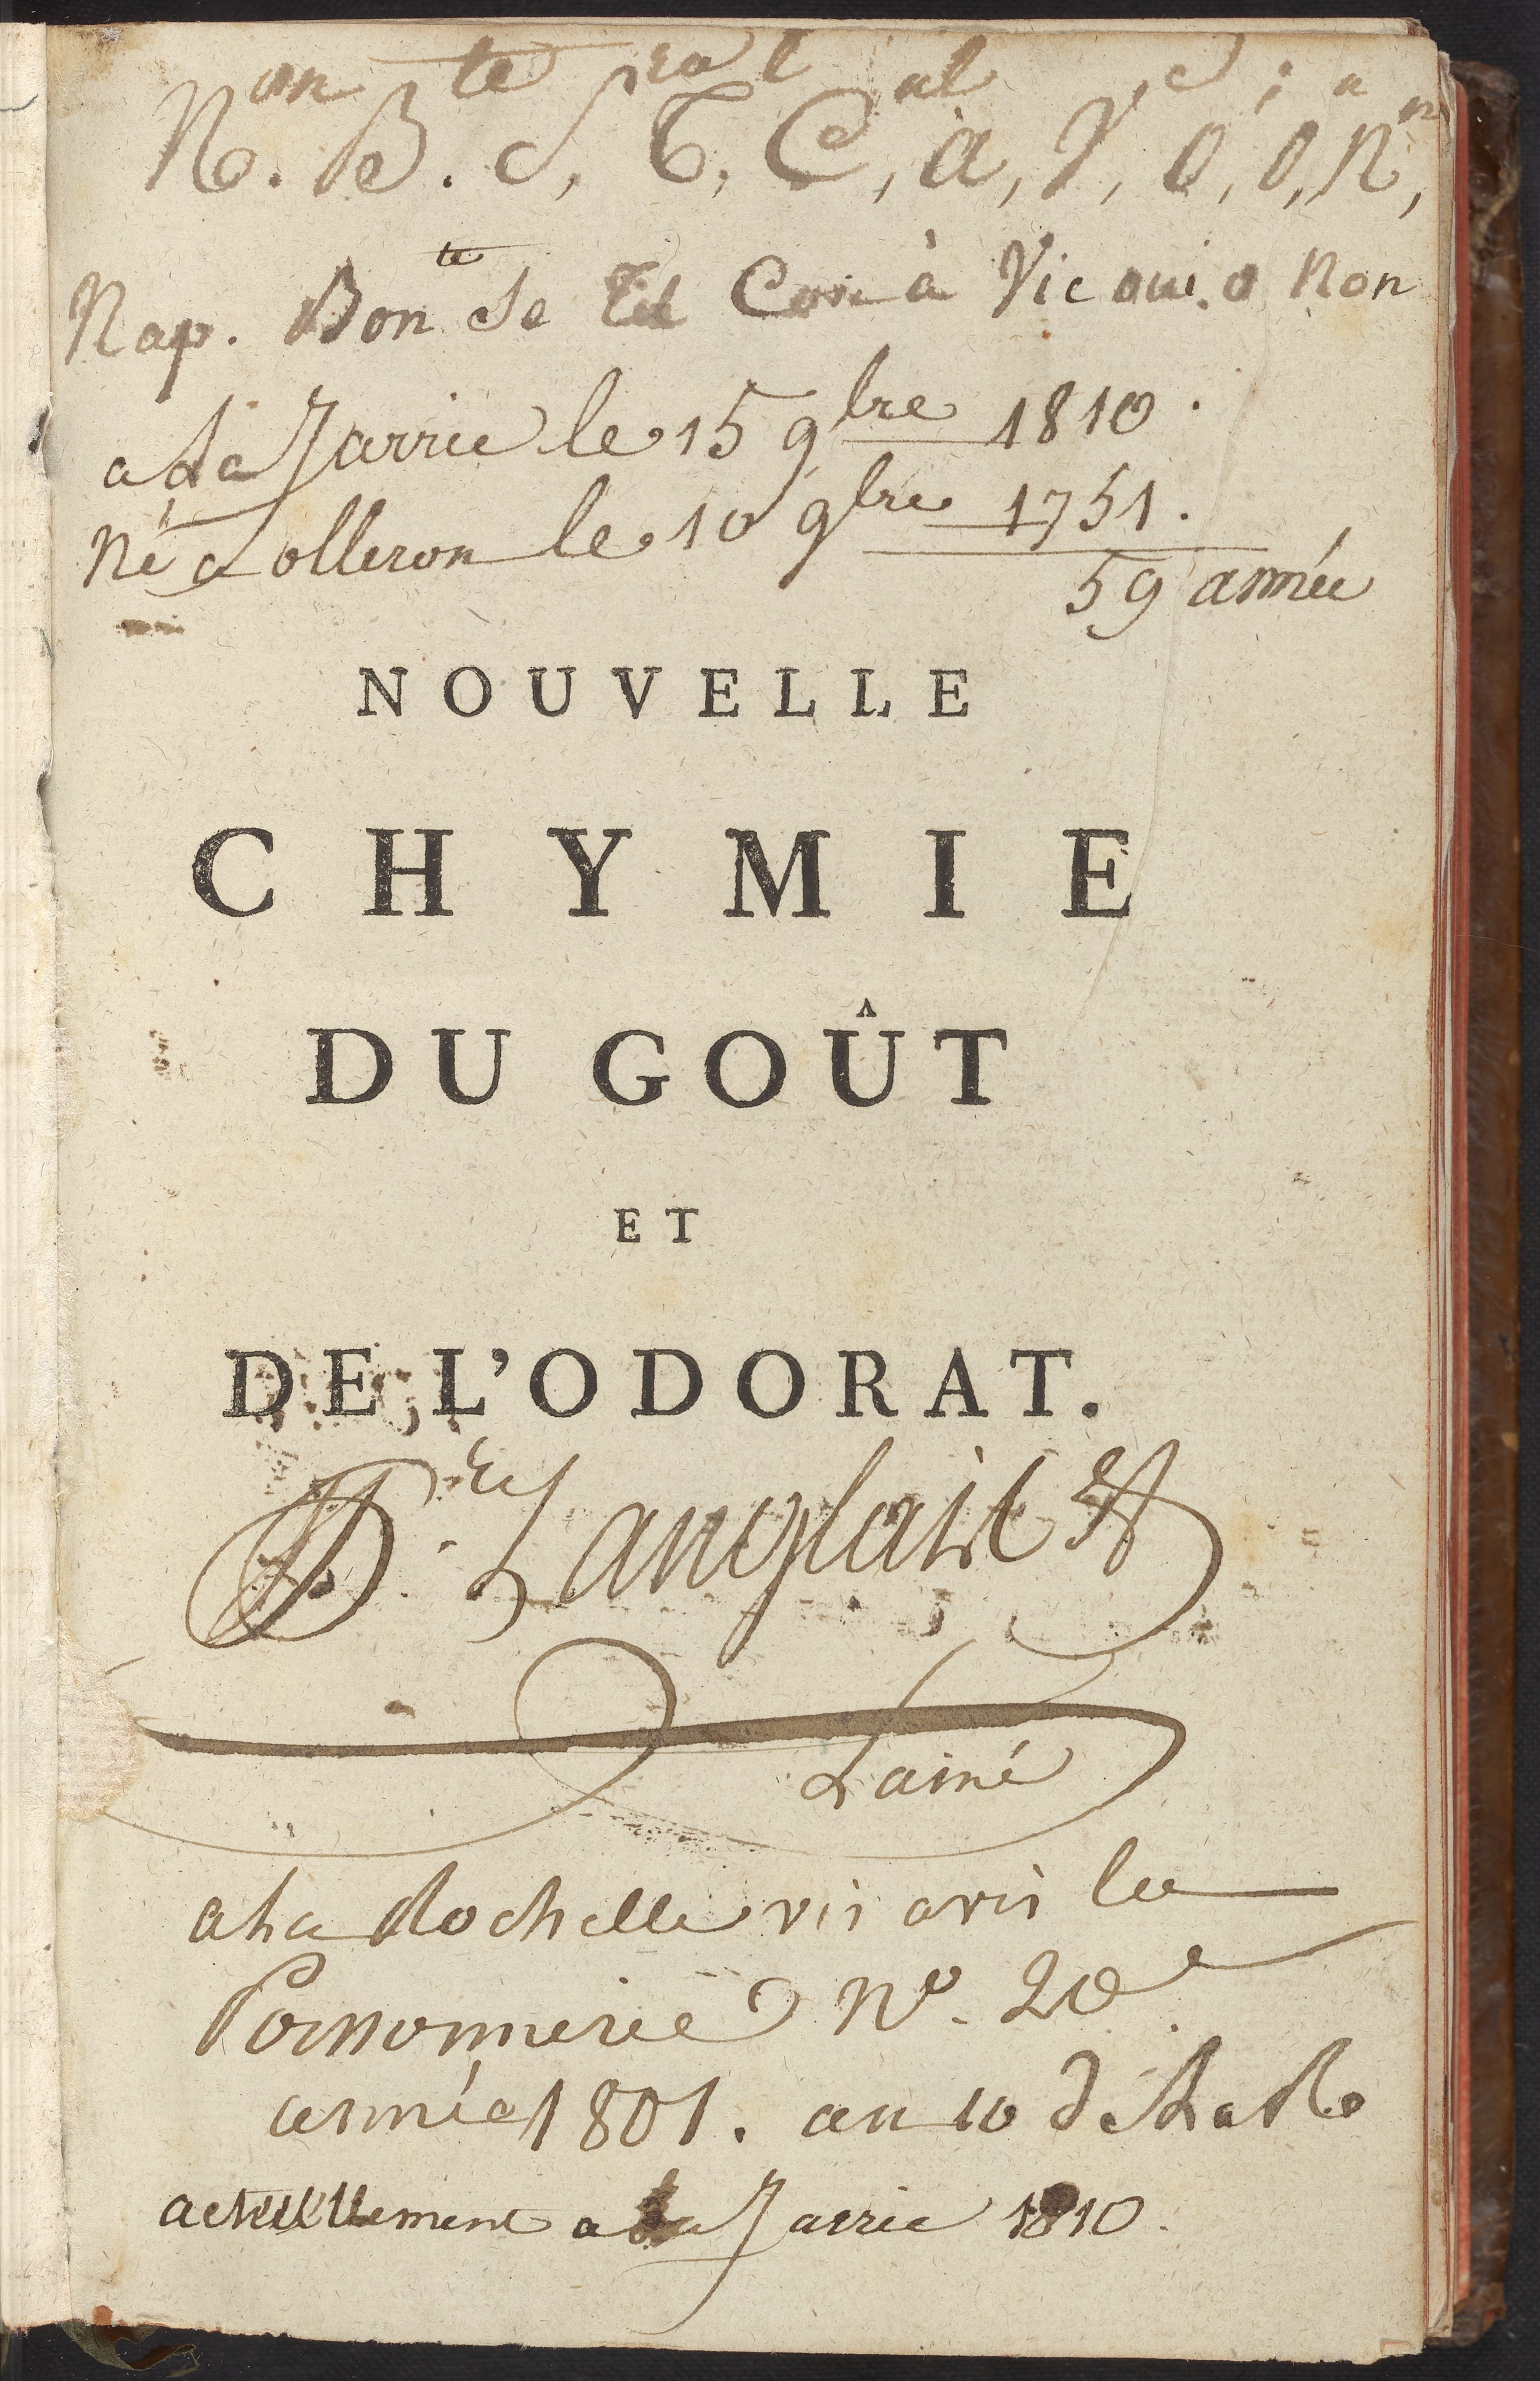 on te ul
N. B. S, T, C, a, V, O, O, N,
te
Nap. Bon Se Con à Vie oui. o Non
a La Jarrie le 15 9bre 1810.
Né a olleron le 10 9bre 1751.
59 année
NOUVELLE
CHYMIE
DU GOÛT
ET
DE L'ODORAT.
Langlais
Lainé
a La Rochelle vis avis la
Poissonnerie No. 20
année 1801. an 10 de La R
actuellement a La Jarrie 1810.